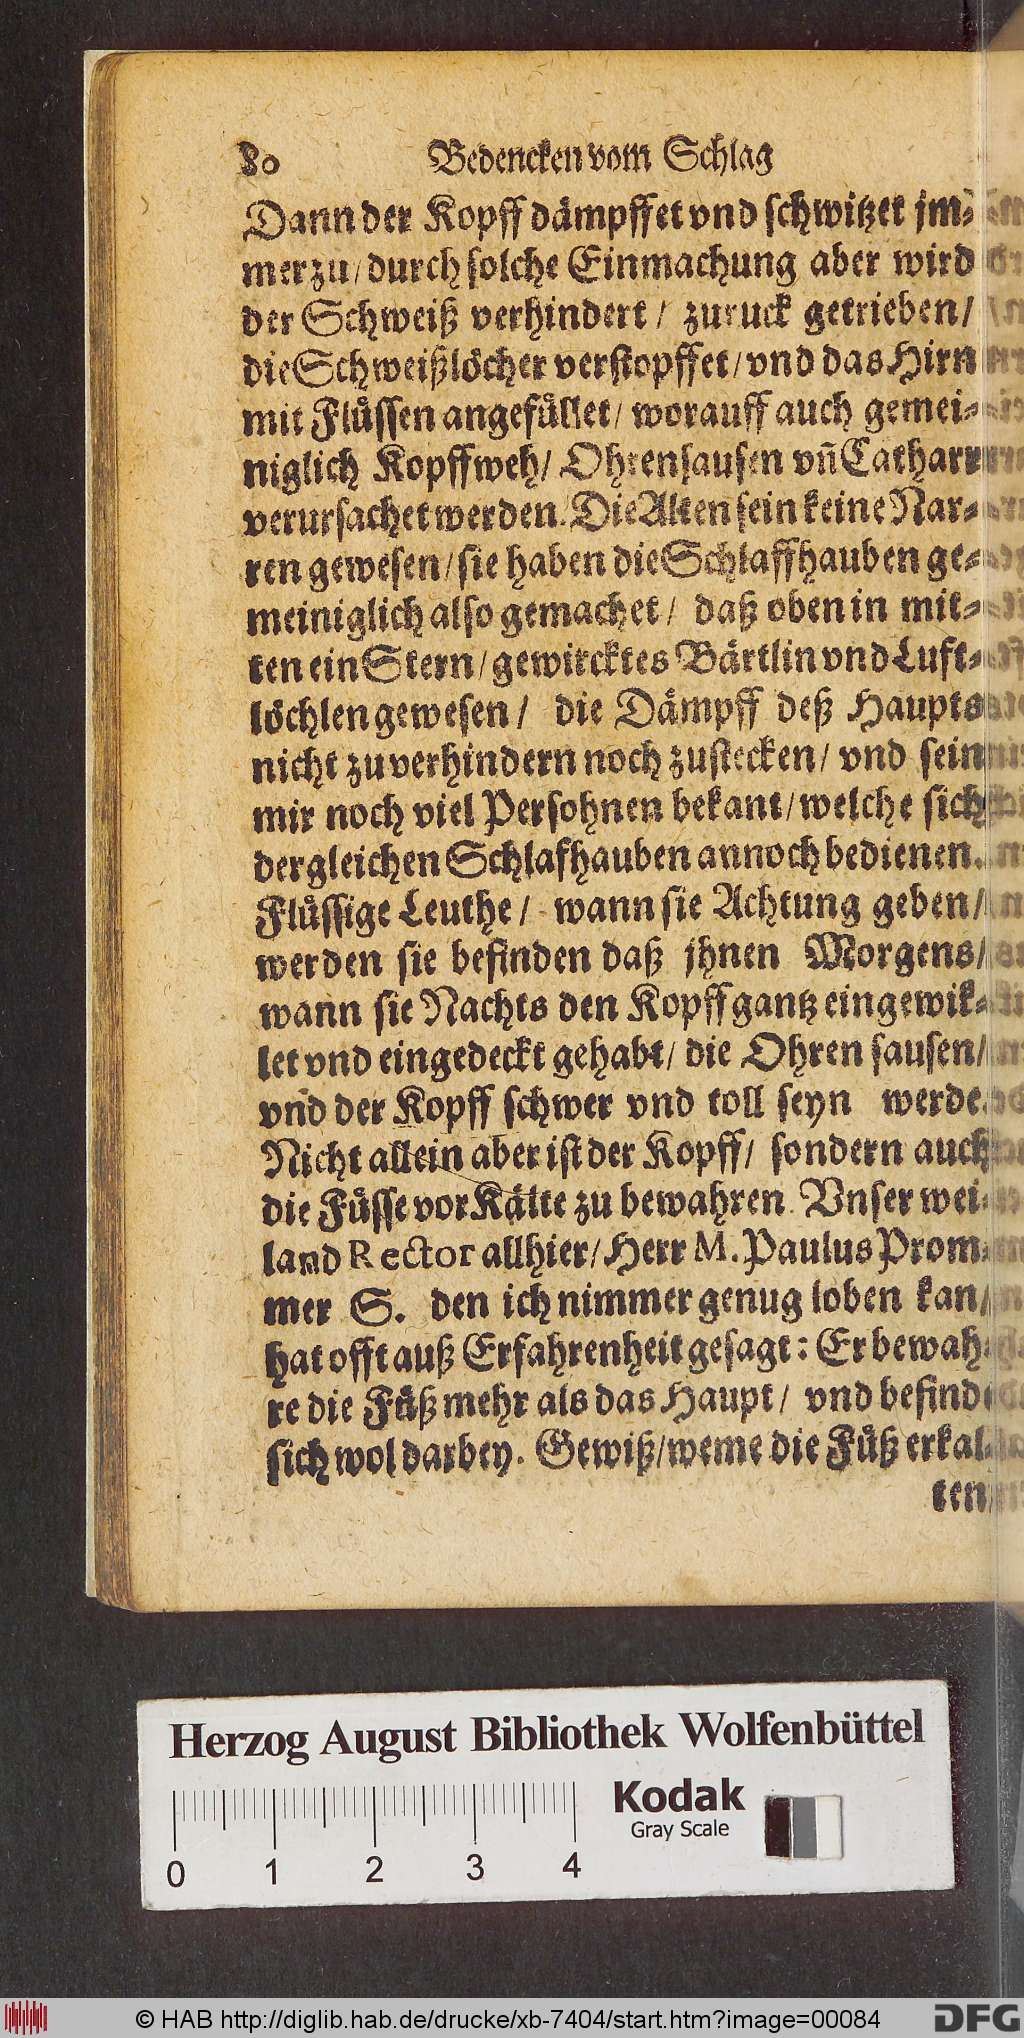 80 Bedencken vom Schlag
Dann der Kopff dämpffet vnd schwitzet jm-
merzu/ durch solche Einmachung aber wird
der Schweiß verhindert/ zuruck getrieben/
die Schweißlöcher verstopffet/ vnd das Hirn
mit Flüssen angefüllet/ worauff auch gemei-
niglich Kopffweh/ Ohrensausen vñ Catharr
verursachet werden. Die Alten sein keine Nar-
ren gewesen/ sie haben die Schlaffhauben ge-
meiniglich also gemachet/ daß oben in mit-
ten ein Stern/ gewircktes Bärtlin vnd Luft-
löchlen gewesen/ die Dämpff deß Haupts
nicht zuverhindern noch zustecken/ vnd sein
mir noch viel Persohnen bekant/ welche sich
dergleichen Schlafhauben annoch bedienen.
Flüssige Leuthe/ wann sie Achtung geben/
werden sie befinden daß jhnen Morgens/
wann sie Nachts den Kopff gantz eingewik-
let vnd eingedeckt gehabt/ die Ohren sausen/
vnd der Kopff schwer vnd toll seyn werde.
Nicht allein aber ist der Kopff/ sondern auch
die Füsse vor Kälte zu bewahren. Vnser wei-
land Rector allhier/ Herr M. Paulus Prom-
mer S. den ich nimmer genug loben kan/
hat offt auß Erfahrenheit gesagt: Er bewah-
re die Füß mehr als das Haupt/ vnd befind
sich wol darbey. Gewiß/ weme die Füß erkal-
ten/
Herzog August Bibliothek Wolfenbüttel
Kodak
Gray Scale
0 1 2 3 4
© HAB http://diglib.hab.de/drucke/xb-7404/start.htm?image=00084
DFG